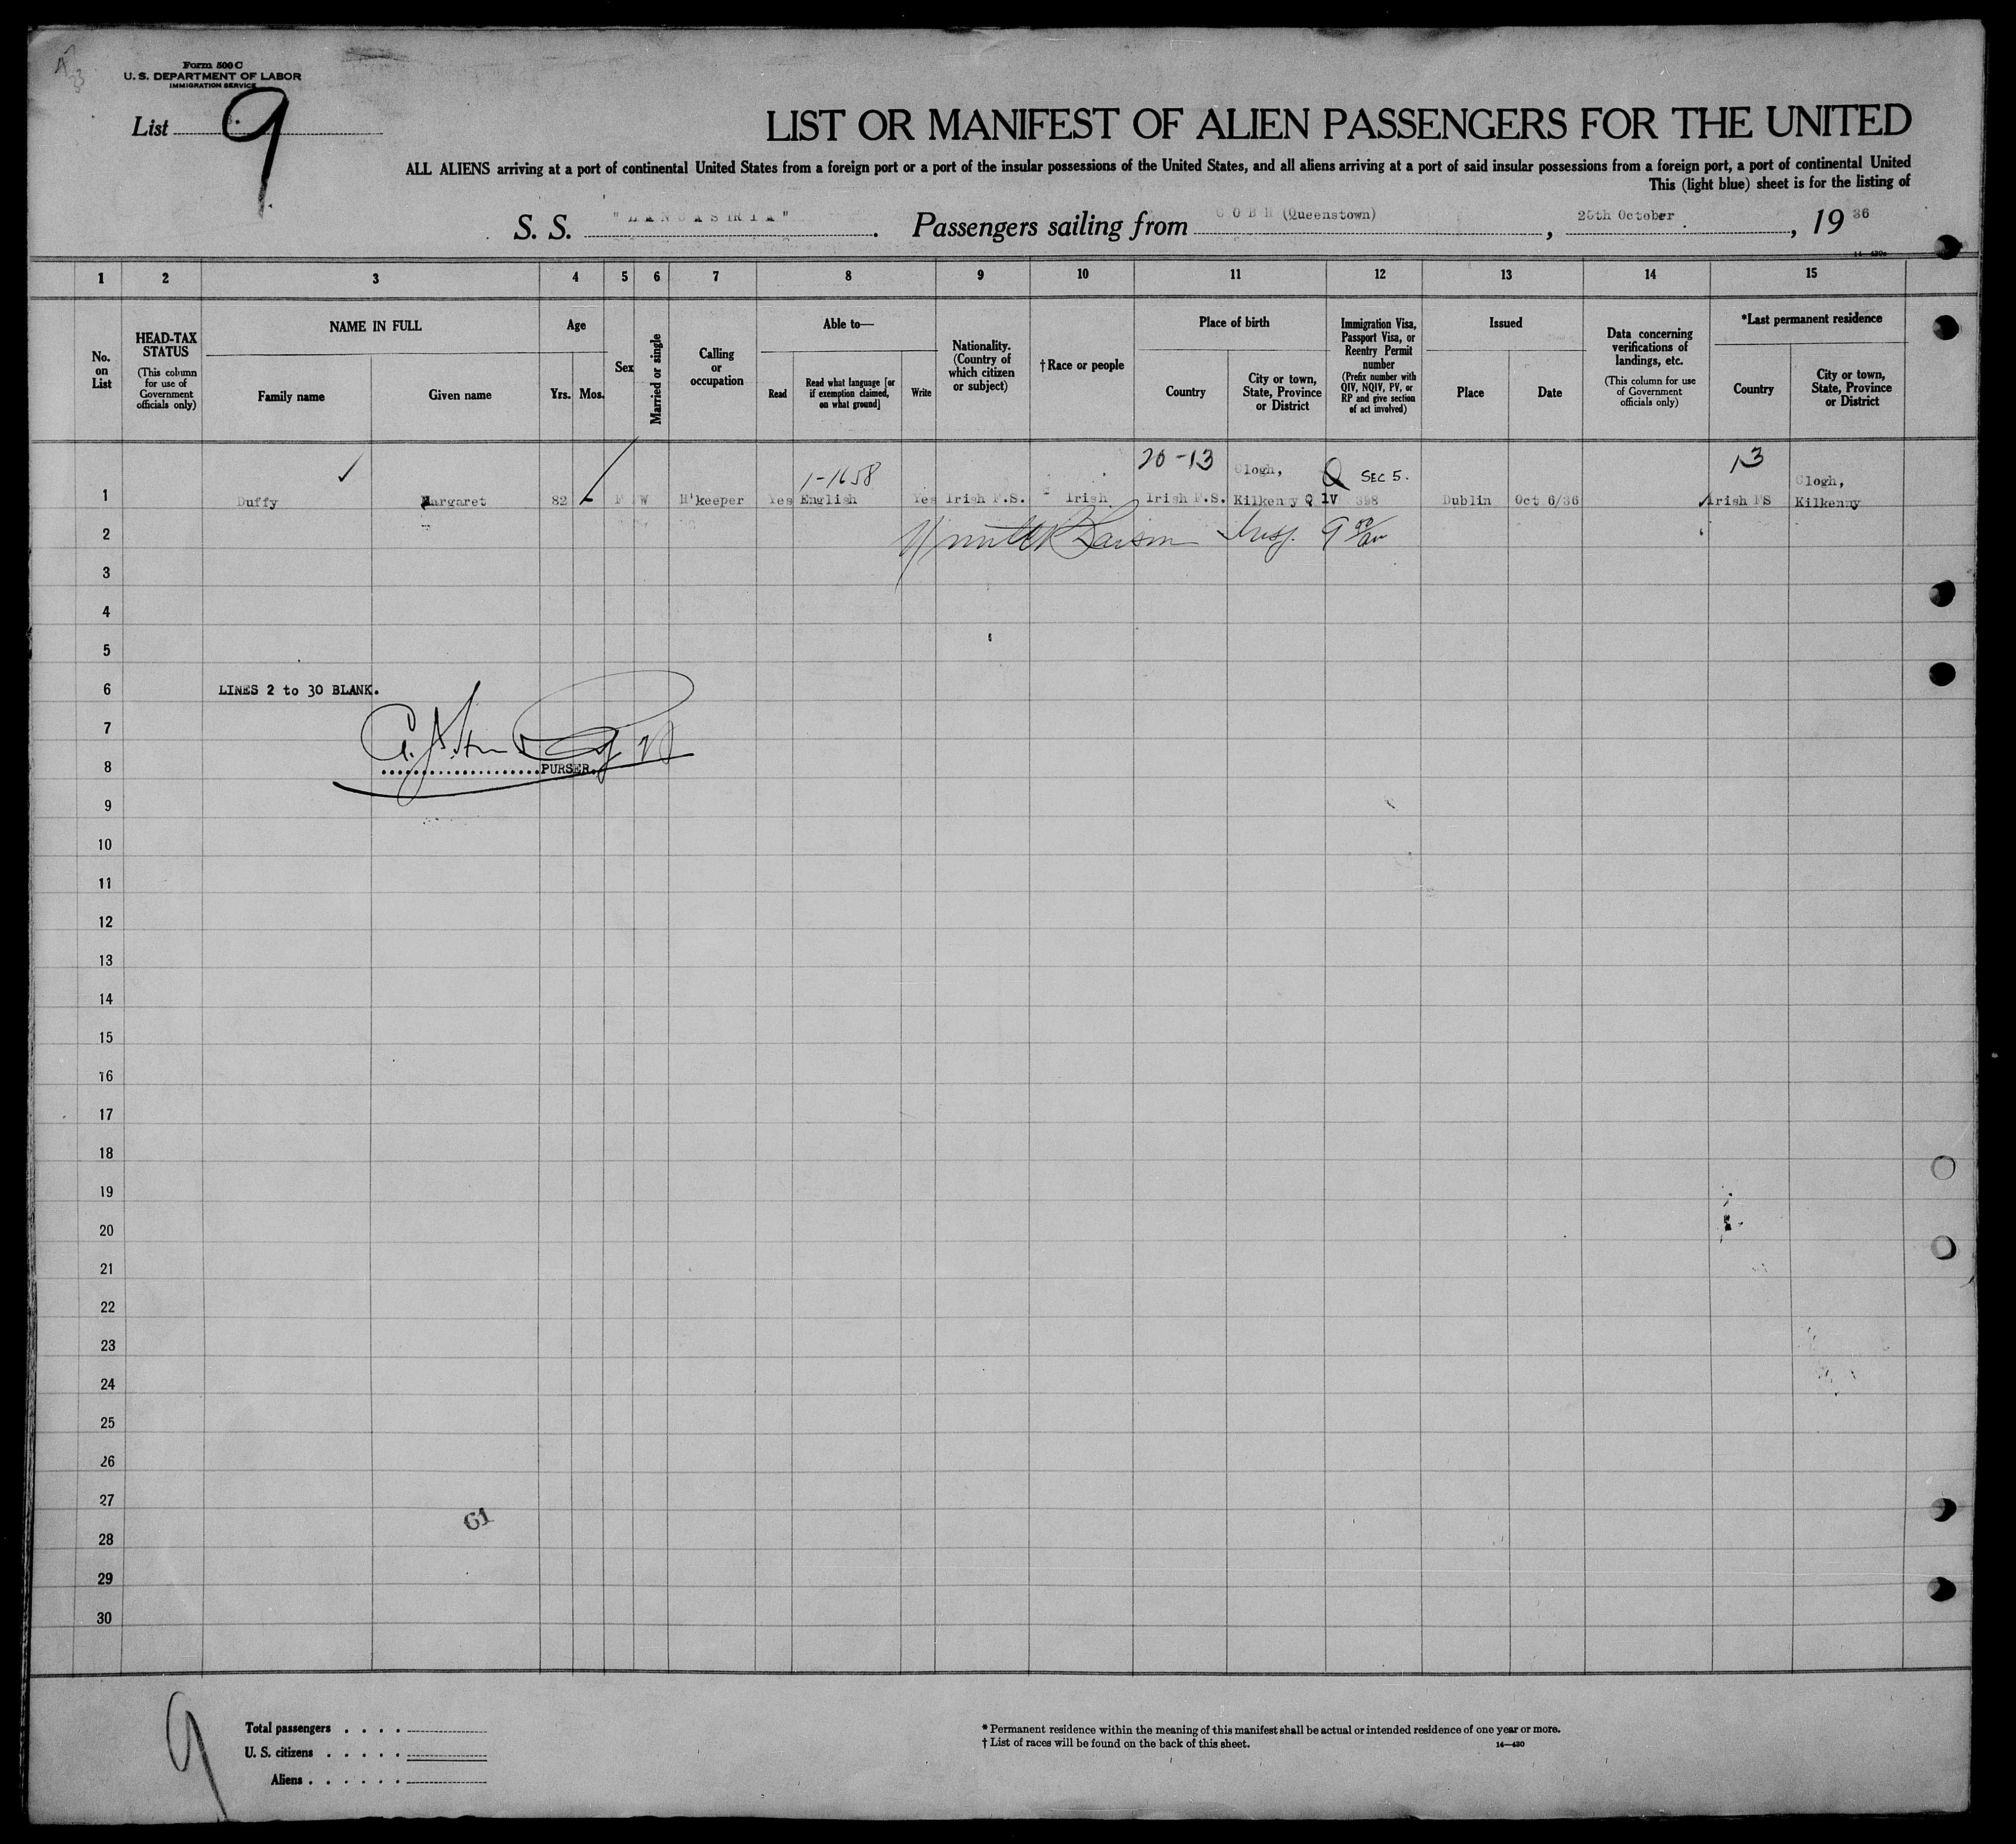 Form 500 C
U. S. DEPARTMENT OF LABOR
IMMIGRATION SERVICE
List 9
LIST OR MANIFEST OF ALIEN PASSENGERS FOR THE UNITED
ALL ALIENS arriving at a port of continental United States from a foreign port or a port of the insular possessions of the United States, and all aliens arriving at a port of said insular possessions from a foreign port, a port of continental United
This (light blue) sheet is for the listing of
S. S. , Passengers sailing from COBH (Queenstown), 25th October, 1936
14—430a
1 2 3 4 5 6 7 8 9 10 11 12 13 14 15
No. on List
HEAD-TAX STATUS
(This column for use of Government officials only)
NAME IN FULL
Family name
Given name
Age
Yrs. Mos.
Sex
Married or single
Calling or occupation
Able to—
Read
Read what language [or if exemption claimed, on what ground]
Write
Nationality. (Country of which citizen or subject)
† Race or people
Place of birth
Country
City or town, State, Province or District
Immigration Visa, Passport Visa, or Reentry Permit number
(Prefix number with QIV, NQIV, PV, or RP and give section of act involved)
Issued
Place
Date
Data concerning verifications of landings, etc.
(This column for use of Government officials only)
*Last permanent residence
Country
City or town, State, Province or District
1-1658 20-13 Clogh, Q SEC 5. 13 Clogh,
1 Duffy Margaret 82 - F W H'keeper Yes English Yes Irish F.S. Irish Irish F.S. Kilkenny Q 1V 398 Dublin Oct 6/36 Irish FS Kilkenny
2
3
4
5
6 LINES 2 to 30 BLANK.
7
8 PURSER.
9
10
11
12
13
14
15
16
17
18
19
20
21
22
23
24
25
26
27
61
28
29
30
9
Total passengers . . . .
U. S. citizens . . . . .
Aliens . . . . . .
* Permanent residence within the meaning of this manifest shall be actual or intended residence of one year or more.
† List of races will be found on the back of this sheet.
14—430